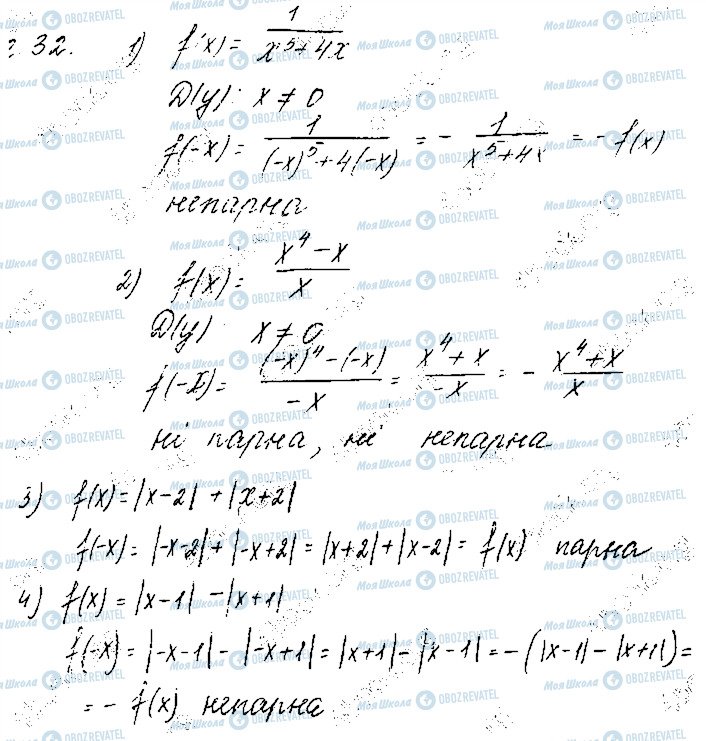 32. 1) f(x) = 1/(x⁵+4x)
D(y): x ≠ 0
f(-x) = 1/((-x)⁵+4(-x)) = - 1/(x⁵+4x) = -f(x)
непарна
2) f(x) = (x⁴-x)/x
D(y) x ≠ 0
f(-x) = ((-x)⁴-(-x))/(-x) = (x⁴+x)/(-x) = - (x⁴+x)/x
ні парна, ні непарна
3) f(x) = |x-2| + |x+2|
f(-x) = |-x-2| + |-x+2| = |x+2| + |x-2| = f(x) парна
4) f(x) = |x-1| - |x+1|
f(-x) = |-x-1| - |-x+1| = |x+1| - |x-1| = -(|x-1| - |x+1|) =
= - f(x) непарна